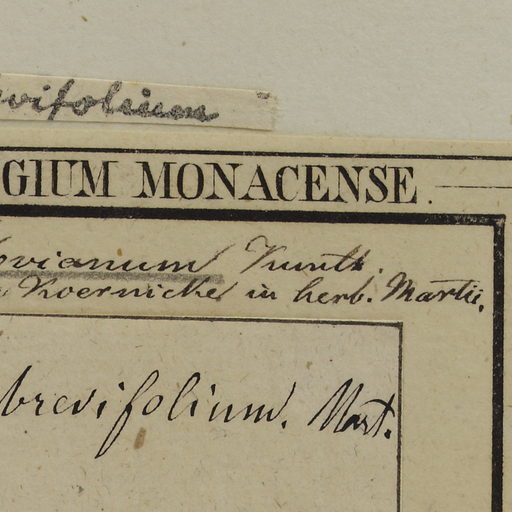 vifolium
GIUM MONACENSE.
ovianum Kunth.
Koernicke in herb. Martii.
brevifolium. Mart.